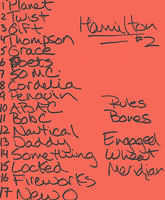 1 Planet
2 Twist
3 Gift
4 Thompson
5 Grace
6 Poets
7 50 MC.
8 Cordelia
9 Penguin
10 ABAC
11 BOBC
12 Nautical
13 Daddy
14 Something
15 Locked
16 Fireworks
17 New O
Hamilton
#2
Rules
Bones
Engaged
Wheat
Meridian